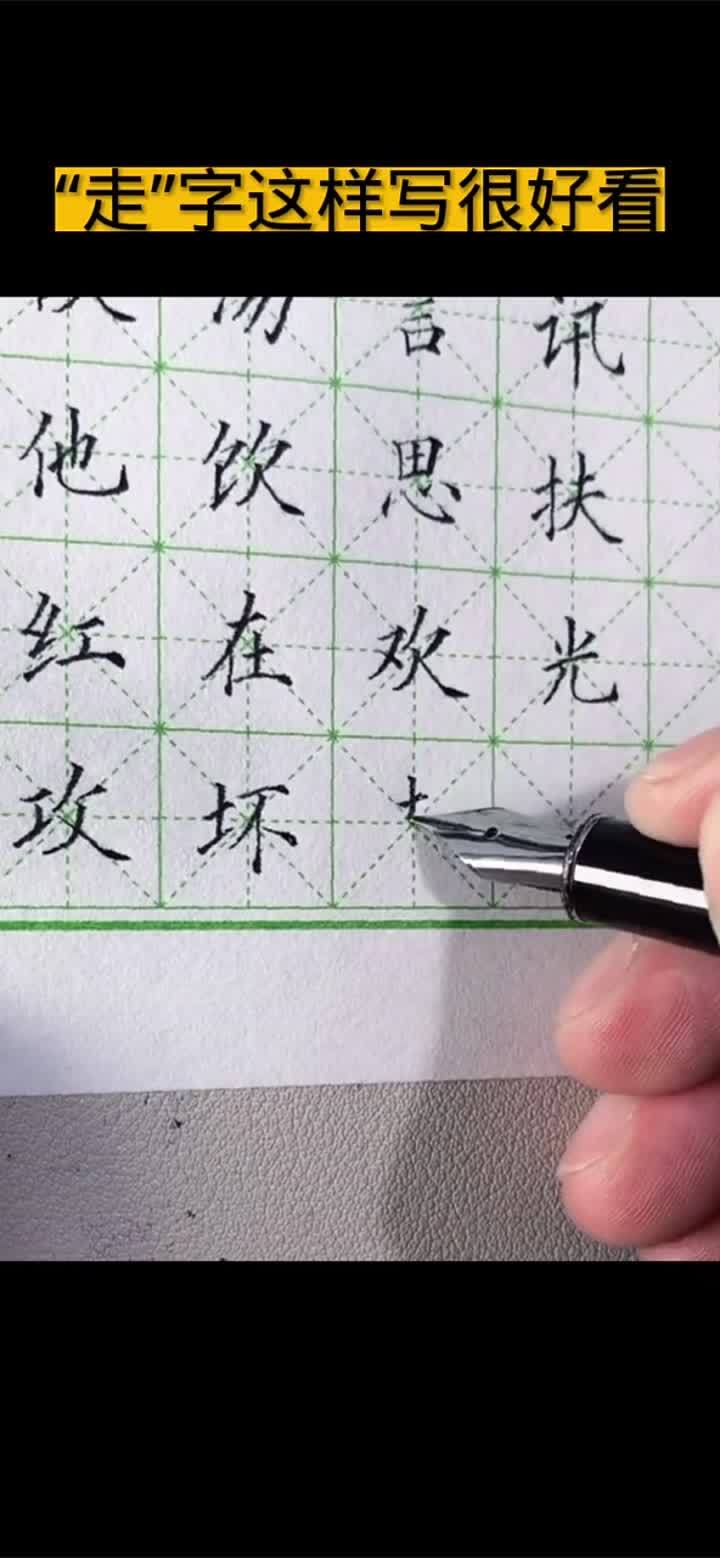 “走”字这样写很好看
言 讯
他 饮 思 扶
红 在 欢 光
攻 坏